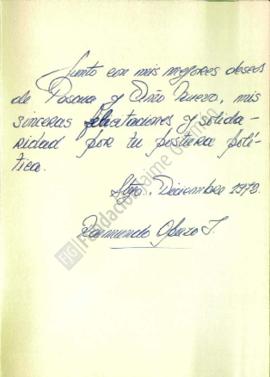 Junto con mis mejores deseos
de Pascua y Año Nuevo, mis
sinceras felicitaciones y solida-
ridad por tu postura polí-
tica.
Stgo. Diciembre 1978.
Raimundo
Fundación Jaime Guzmán